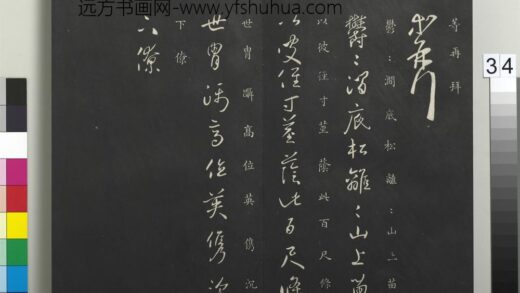 远方书画网-www.yfshuhua.com
34
等再拜
等再拜
鬱〻澗底松離〻山上苗
鬱〻澗底松離〻山上苗
以彼徑寸莖蔭此百尺條
以彼徑寸莖蔭此百尺條
世胄躡高位英俊沉
世胄躡高位英俊沉
下僚
下僚